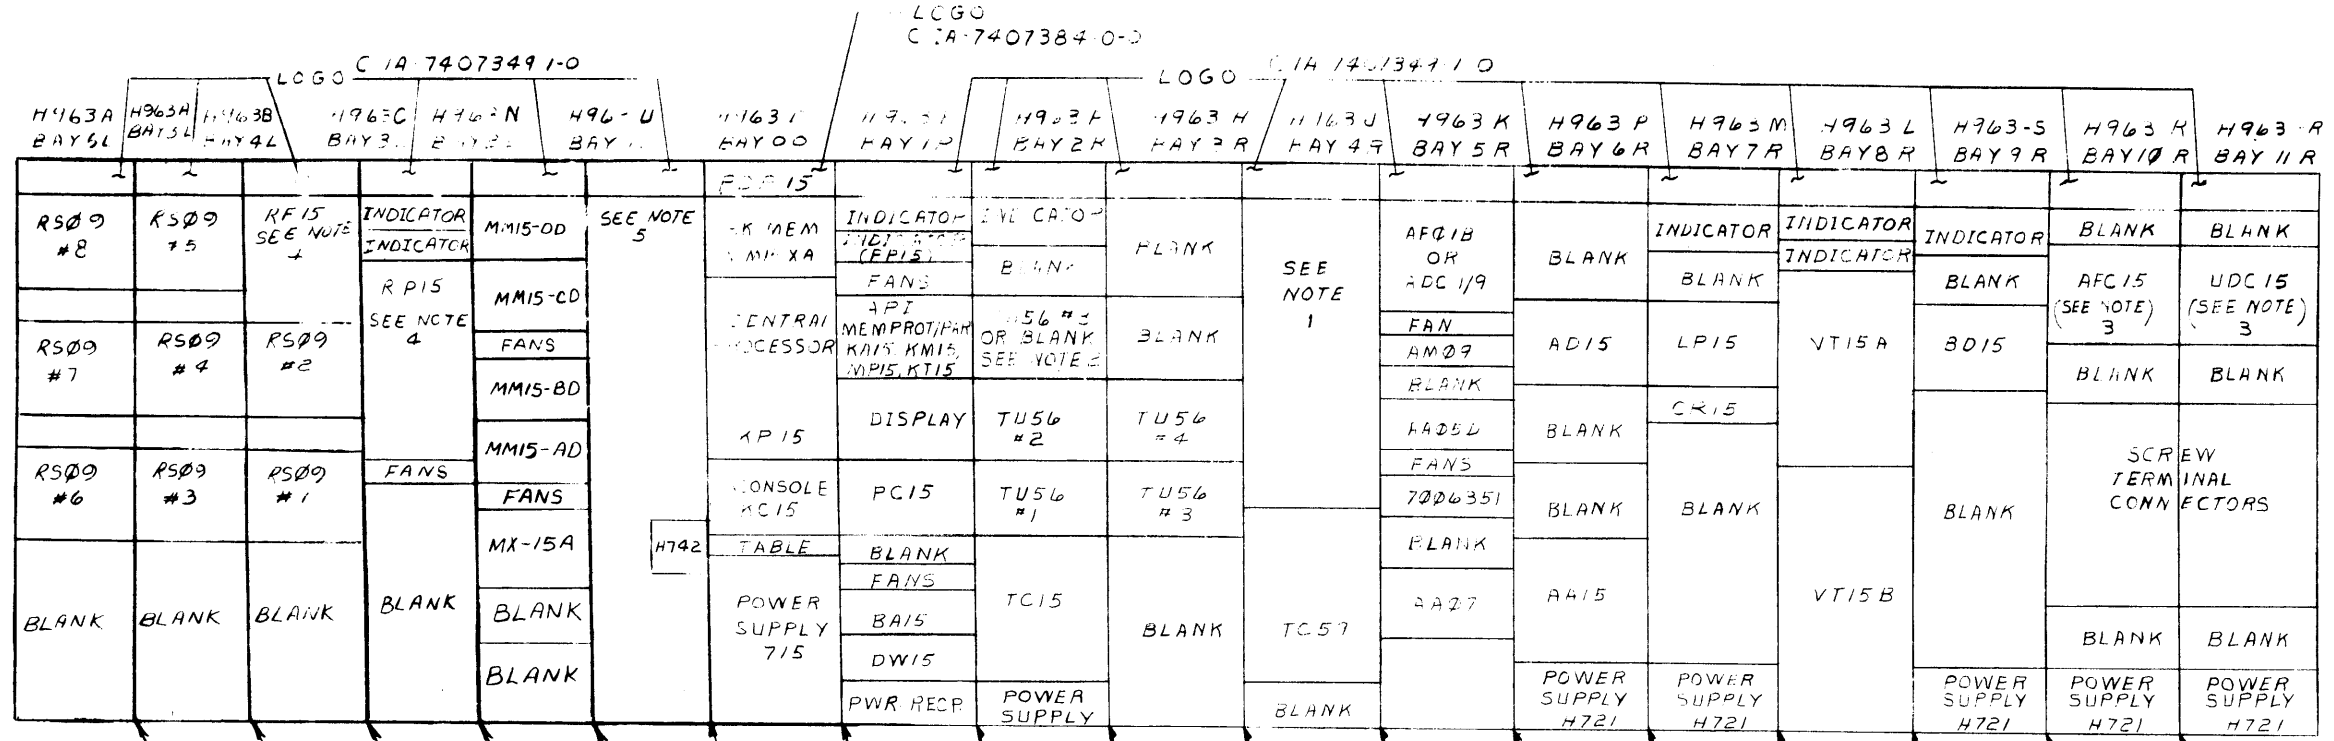 LOGO
7407384-0-0
LOGO
7407349 1-0
LOGO
H963A
BAY 6L
H963A
BAY 5L
H963B
BAY 4L
H963C
BAY 3
H963N
H96 U
BAY
H963
BAY 00
BAY 1R
H963
BAY 2R
H963 H
BAY 3 R
H963 J
BAY 4R
H963 K
BAY 5 R
H963 P
BAY 6 R
H963 M
BAY 7 R
H963 L
BAY 8 R
H963-S
BAY 9 R
H963 R
BAY 1Ø R
H963 R
BAY 11 R
RSØ9
#8
RSØ9
#7
RSØ9
#6
BLANK
RSØ9
#5
RSØ9
#4
RSØ9
#3
BLANK
RF15
SEE NOTE
4
RSØ9
#2
RSØ9
#1
BLANK
INDICATOR
INDICATOR
RP15
SEE NOTE
4
FANS
BLANK
MM15-DD
MM15-CD
FANS
MM15-BD
MM15-AD
FANS
MX-15A
BLANK
BLANK
SEE NOTE
5
H742
PDP 15
MEM
XA
CENTRAL
PROCESSOR
KP15
CONSOLE
KC15
TABLE
POWER
SUPPLY
715
INDICATOR
INDICATOR
(FP15)
FANS
API
MEMPROT/PAR
KA15, KM15,
MP15, KT15
DISPLAY
PC15
BLANK
FANS
BA15
DW15
PWR RECP
INDICATOR
BLANK
TU56
OR BLANK
SEE NOTE
TU56
#2
TU56
#1
TC15
POWER
SUPPLY
BLANK
BLANK
TU56
#4
TU56
#3
BLANK
SEE
NOTE
1
TC59
BLANK
AFØ1B
OR
ADC 1/9
FAN
AMØ9
BLANK
AAØ5
FANS
7ØØ6351
BLANK
AAØ7
BLANK
AD15
BLANK
BLANK
AA15
POWER
SUPPLY
H721
INDICATOR
BLANK
LP15
CR15
BLANK
POWER
SUPPLY
H721
INDICATOR
INDICATOR
VT15A
VT15B
INDICATOR
BLANK
BD15
BLANK
POWER
SUPPLY
H721
BLANK
AFC15
(SEE NOTE)
3
BLANK
BLANK
UDC15
(SEE NOTE)
3
BLANK
SCREW
TERMINAL
CONNECTORS
BLANK
POWER
SUPPLY
H721
BLANK
POWER
SUPPLY
H721